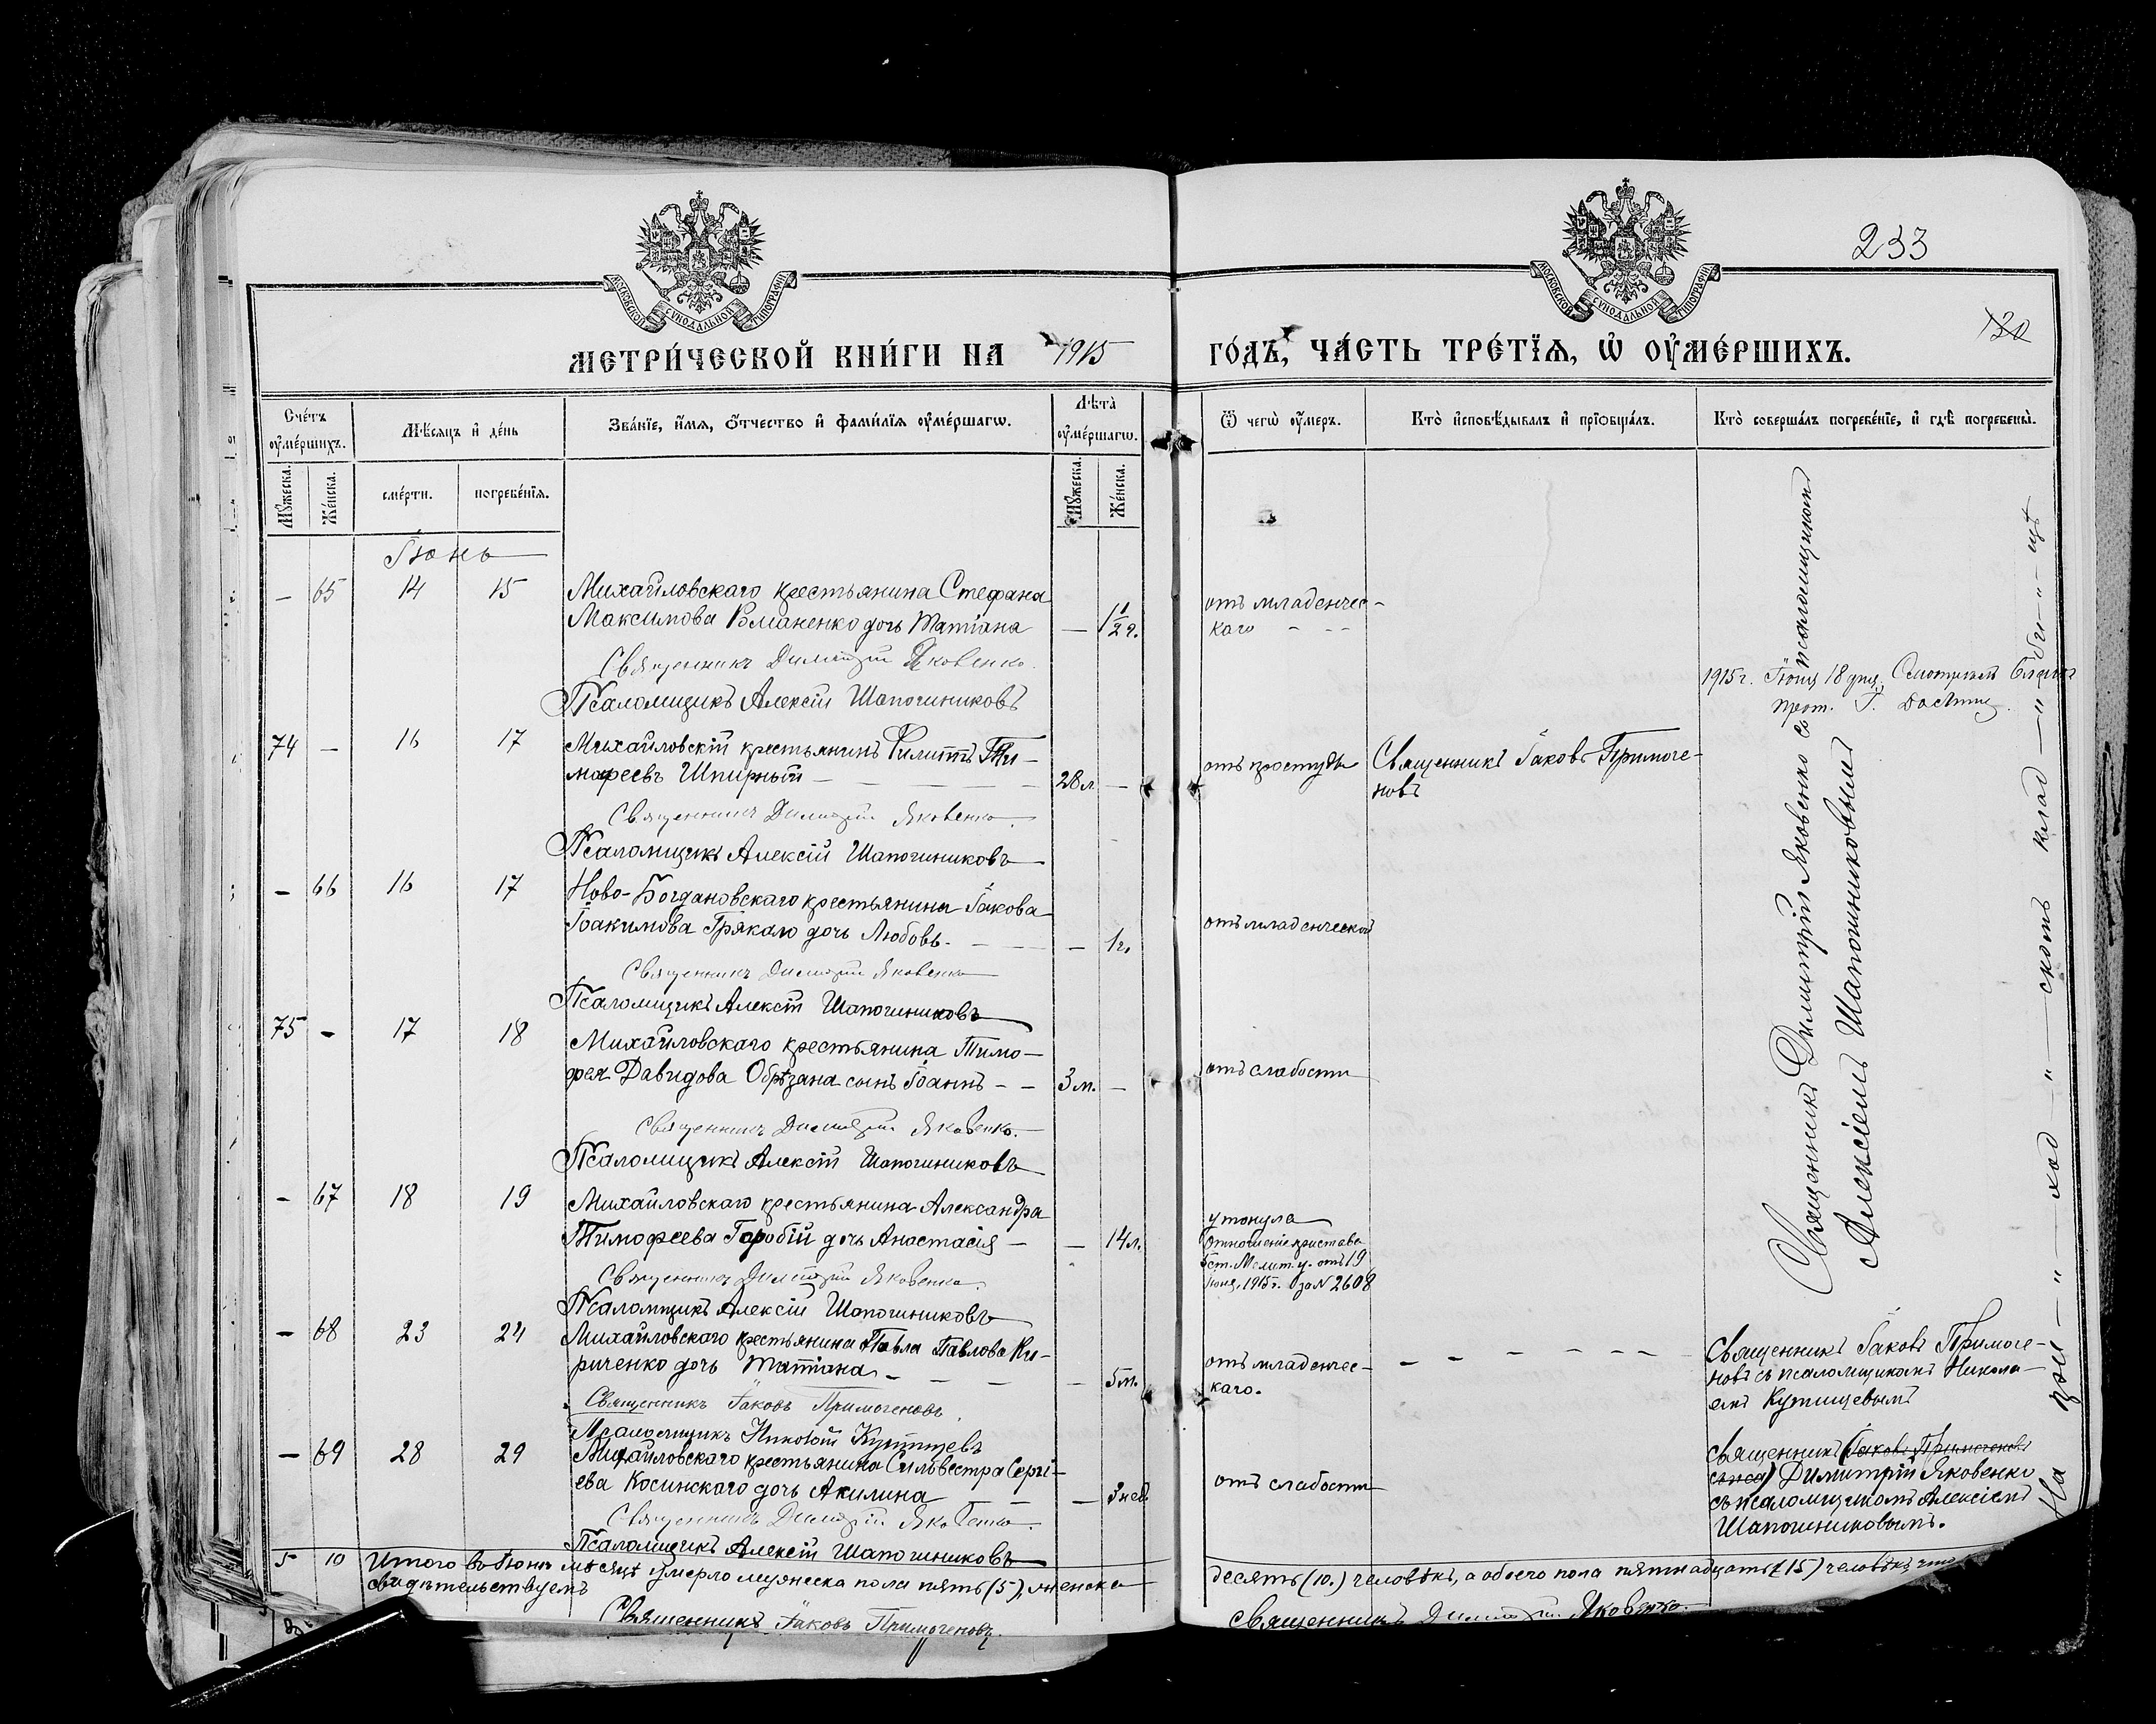 233
130
МОСКОВСКОЙ СѴНОДАЛЬНОЙ ТИПОГРАФІИ
МОСКОВСКОЙ СѴНОДАЛЬНОЙ ТИПОГРАФІИ
МЕТРИ́ЧЕСКОЙ КНИ́ГИ НА 1915
ГО́ДЪ, ЧА́СТЬ ТРЕ́ТІѦ, Ѡ҆ ОУ҆МЕ́РШИХЪ.
Сче́тъ оу҆ме́ршихъ.
Мѣ́сяцъ и҆ де́нь
Зва́нїе, и҆́мѧ, ѻ҆́тчество и҆ фами́лїѧ оу҆ме́ршагѡ.
Лѣ́та оу҆ме́ршагѡ.
Ѿ чегѡ̀ оу҆́меръ.
Кто̀ и҆сповѣ́дывалъ и҆ прїѡбща́лъ.
Кто̀ соверша́лъ погребе́нїе, и҆ гдѣ̀ погребены̀.
Мꙋ́жеска.
Же́нска.
сме́рти.
погребе́нїѧ.
Мꙋ́жеска.
Же́нска.
Іюнь
— 65 14 15 Михайловскаго крестьянина Стефана
Максимова дочь Татіана — 1 1/2 г.
отъ младенчес-
каго - - -
Священникъ Димитрій Яковенко.
Псаломщикъ Алексій Шапошниковъ
1915 г. Іюня 18 дня. Смотрѣлъ
прот. Г.
74 — 16 17 Михайловскій крестьянинъ Филиппъ Ти-
мофеевъ Шпирный — 28 л. —
отъ простуды
Священникъ Іаковъ Примоге-
новъ
Священникъ Димитрій Яковенко.
Псаломщикъ Алексій Шапошниковъ
— 66 16 17 Ново-Богдановскаго крестьянина Іакова
Іоакимова Грякало дочь Любовь. — 1 г.
отъ младенческой
Священникъ Димитрій Яковенко
Псаломщикъ Алексій Шапошниковъ
75 — 17 18 Михайловскаго крестьянина Тимо-
фея Давидова Обрѣзана сынъ Іоаннъ - - 3 м. —
отъ слабости
Священникъ Димитрій Яковенко.
Псаломщикъ Алексій Шапошниковъ
Священникъ Димитрій Яковенко съ псаломщикомъ
Алексіемъ Шапошниковымъ
— 67 18 19 Михайловскаго крестьянина Александра
Тимофеева Горобій дочь Анастасія — — 14 л.
утонула
Отношеніе пристава
5 ст. Мелит. у. отъ 19
Іюня, 1915 г. за № 2608
Священникъ Димитрій Яковенко.
Псаломщикъ Алексій Шапошниковъ
— 68 23 24 Михайловскаго крестьянина Павла Павлова Ки-
риченко дочь Татіана - — — — 5 м.
отъ младенчес-
каго.
— - - - - -
Священникъ Іаковъ Примоге-
новъ съ псаломщикомъ Никола-
емъ Кутищевымъ
Священникъ Іаковъ Примогеновъ.
Псаломщикъ Николай Кутищевъ
— 69 28 29 Михайловскаго крестьянина Сильвестра Сергі-
ева Косинскаго дочь Акилина — — 3 нед.
отъ слабости
Священникъ (Іаковъ Примогеновъ
) Димитрій Яковенко
съ псаломщикомъ Алексіемъ
Шапошниковымъ.
Священникъ Димитрій Яковенко.
Псаломщикъ Алексій Шапошниковъ
На — „ — ход — „ — скомъ клад — „ — би — „ — щѣ
5 10 Итого въ Іюнѣ мѣсяцѣ умерло мужеска пола пять (5), женска
десять (10.) человѣкъ, а обоего пола пятнадцать (15) человѣкъ, что
свидѣтельствуемъ
Священникъ Іаковъ Примогеновъ.
Священникъ Димитрій Яковенко.